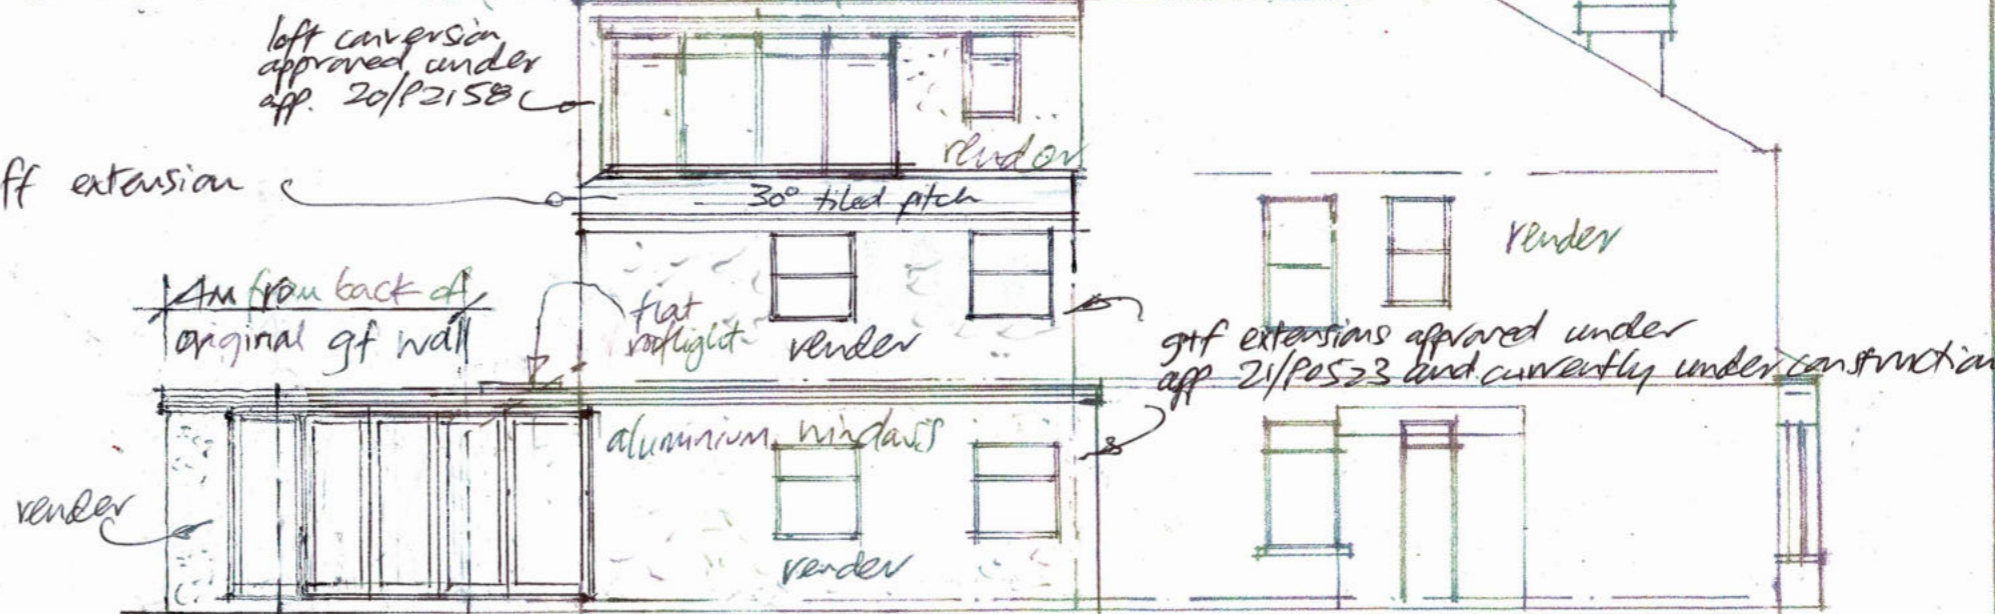 loft conversion
approved under
app. 20/P2158
render
ff extension
30° tiled pitch
render
4m from back of
original gf wall
flat
rooflight
render
g+f extensions approved under
app 21/P0523 and currently under construction
aluminium windows
render
render